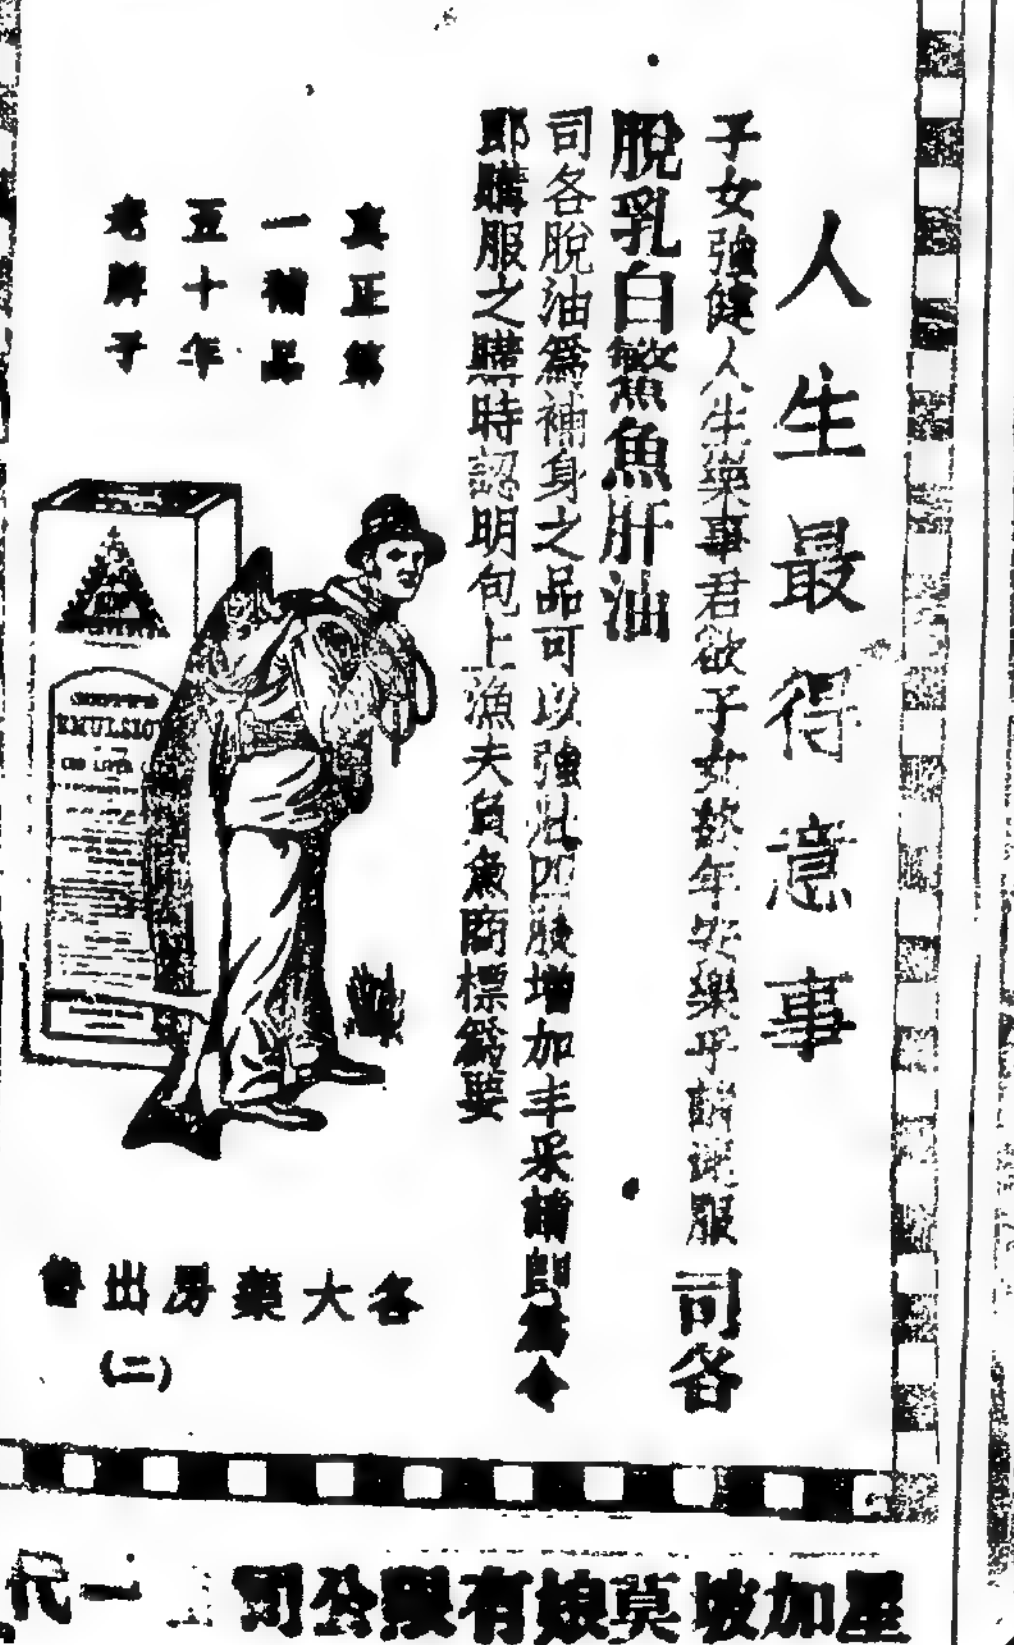 人生最得意事
子女強健人生樂事君欲子女終年安樂乎請速服司各
脫乳白鰵魚肝油
司各脫油為補身之品可以強壯四肢增加丰采請即為令
郎購服之購時認明包上漁夫負魚商標為要
真正第
一補品
五十年
老牌子
EMULSIO
COD LIVER
各大藥房出售
(二)
星加坡莫娘有限公司
一代